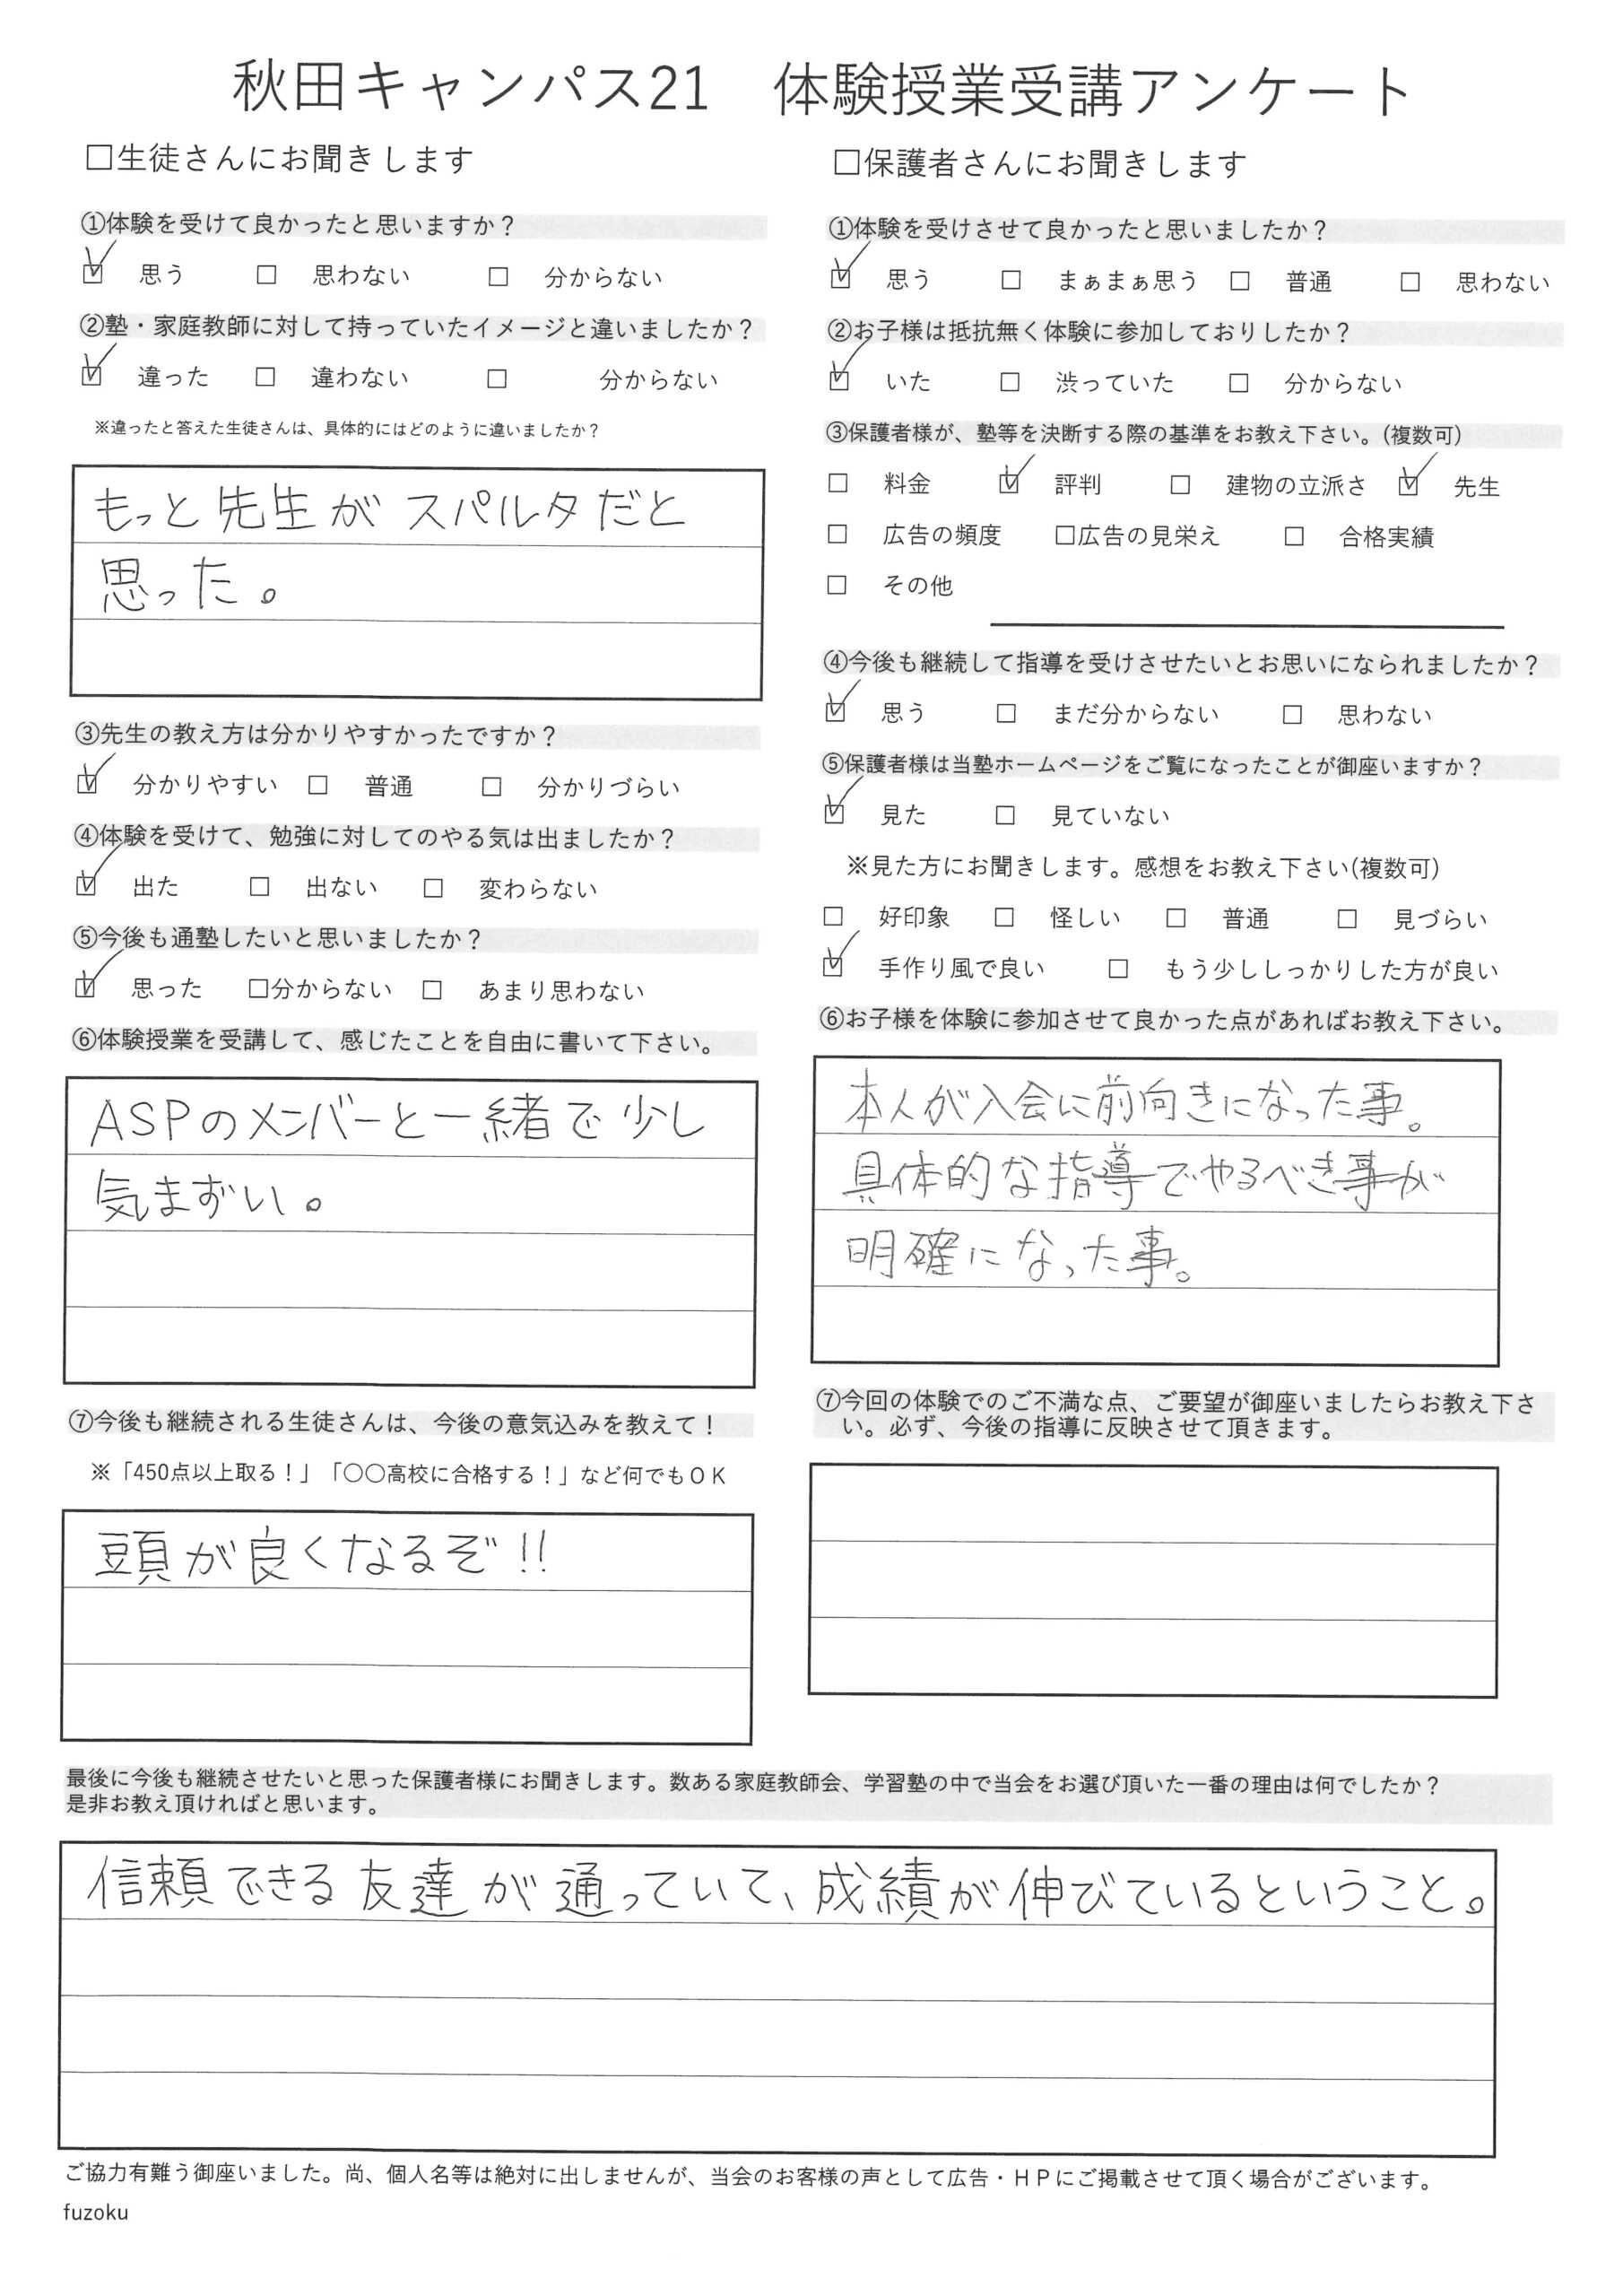 秋田キャンパス21　体験授業受講アンケート
□生徒さんにお聞きします
①体験を受けて良かったと思いますか？
☑ 思う □ 思わない □ 分からない
②塾・家庭教師に対して持っていたイメージと違いましたか？
☑ 違った □ 違わない □ 分からない
※違ったと答えた生徒さんは、具体的にはどのように違いましたか？
もっと先生がスパルタだと
思った。
③先生の教え方は分かりやすかったですか？
☑ 分かりやすい □ 普通 □ 分かりづらい
④体験を受けて、勉強に対してのやる気は出ましたか？
☑ 出た □ 出ない □ 変わらない
⑤今後も通塾したいと思いましたか？
☑ 思った □分からない □ あまり思わない
⑥体験授業を受講して、感じたことを自由に書いて下さい。
ASPのメンバーと一緒で少し
気まずい。
⑦今後も継続される生徒さんは、今後の意気込みを教えて！
※「450点以上取る！」「〇〇高校に合格する！」など何でもＯＫ
頭が良くなるぞ!!
□保護者さんにお聞きします
①体験を受けさせて良かったと思いましたか？
☑ 思う □ まぁまぁ思う □ 普通 □ 思わない
②お子様は抵抗無く体験に参加しておりしたか？
☑ いた □ 渋っていた □ 分からない
③保護者様が、塾等を決断する際の基準をお教え下さい。(複数可)
□ 料金 ☑ 評判 □ 建物の立派さ ☑ 先生
□ 広告の頻度 □広告の見栄え □ 合格実績
□ その他
④今後も継続して指導を受けさせたいとお思いになられましたか？
☑ 思う □ まだ分からない □ 思わない
⑤保護者様は当塾ホームページをご覧になったことが御座いますか？
☑ 見た □ 見ていない
※見た方にお聞きします。感想をお教え下さい(複数可)
□ 好印象 □ 怪しい □ 普通 □ 見づらい
☑ 手作り風で良い □ もう少ししっかりした方が良い
⑥お子様を体験に参加させて良かった点があればお教え下さい。
本人が入会に前向きになった事。
具体的な指導でやるべき事が
明確になった事。
⑦今回の体験でのご不満な点、ご要望が御座いましたらお教え下さ
い。必ず、今後の指導に反映させて頂きます。
最後に今後も継続させたいと思った保護者様にお聞きします。数ある家庭教師会、学習塾の中で当会をお選び頂いた一番の理由は何でしたか？
是非お教え頂ければと思います。
信頼できる友達が通っていて、成績が伸びているということ。
ご協力有難う御座いました。尚、個人名等は絶対に出しませんが、当会のお客様の声として広告・ＨＰにご掲載させて頂く場合がございます。
fuzoku